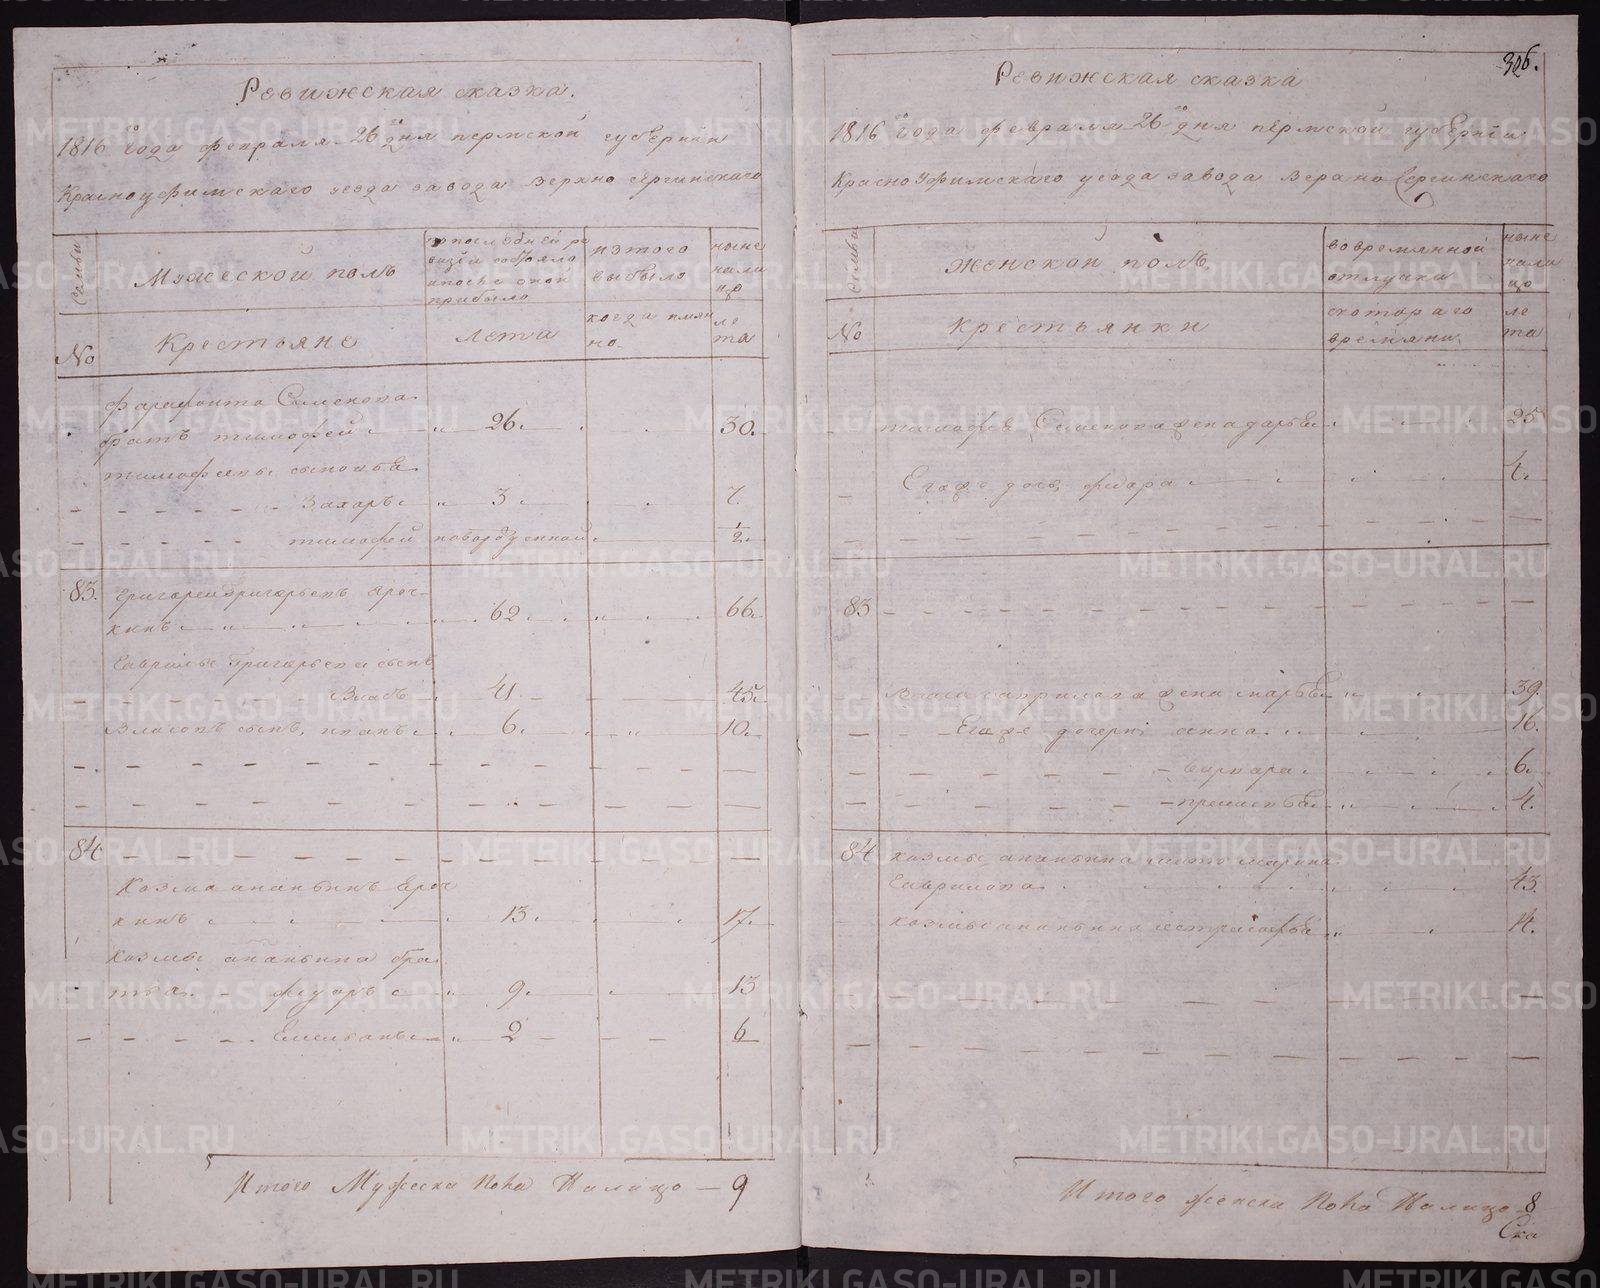 Ревижская сказка.
1816го года февраля 26го дня пермской губернии
Красноуфимскаго уезда завода Верхно сергинскаго
Семьи
Мужеской полъ
по последней ре
визги состояло
и после оной
прибыло
изтого
выбыло
ныне
нали
цо
№
Крестьяне
Лета
когда имян
но
ле
та
Фарафонта Семенова
братъ тимофей 26. 30.
тимофеевы сыновья
Захаръ 3 7.
тимофей новорозденной 1/2.
83. григорей Григорьевъ Ероч
кинъ 62 66.
Гаврилы Григорьева сынъ
Власъ 41. 45.
Власовъ сынъ, иванъ 6. 10.
84
Козма ананьинъ Ероч
кинъ 13. 17.
Козмы ананьина бра
тья федоръ 9. 13
Емельянъ 2 6
Итого Мужеска пола Налицо — 9
306.
Ревижская сказка
1816го года февраля 26го дня пермской губернии
Красноуфимскаго уезда завода Верхно Сергинскаго
Семьи
Женской полъ
во времянной
отлучки
ныне
нали
цо
№
Крестьянки
скотораго
времяни
ле
та
тимофея Семенова жена дарья 35
Егоже дочь, 4.
83
Власа гаврилова жена марья 39.
Егоже дочери анна 16.
варвара 6.
4.
84 Козмы ананьина мать марина
Гаврилова 43.
Козмы ананьина сестра софья 14.
Итого женска пола Налицо 8
Ска